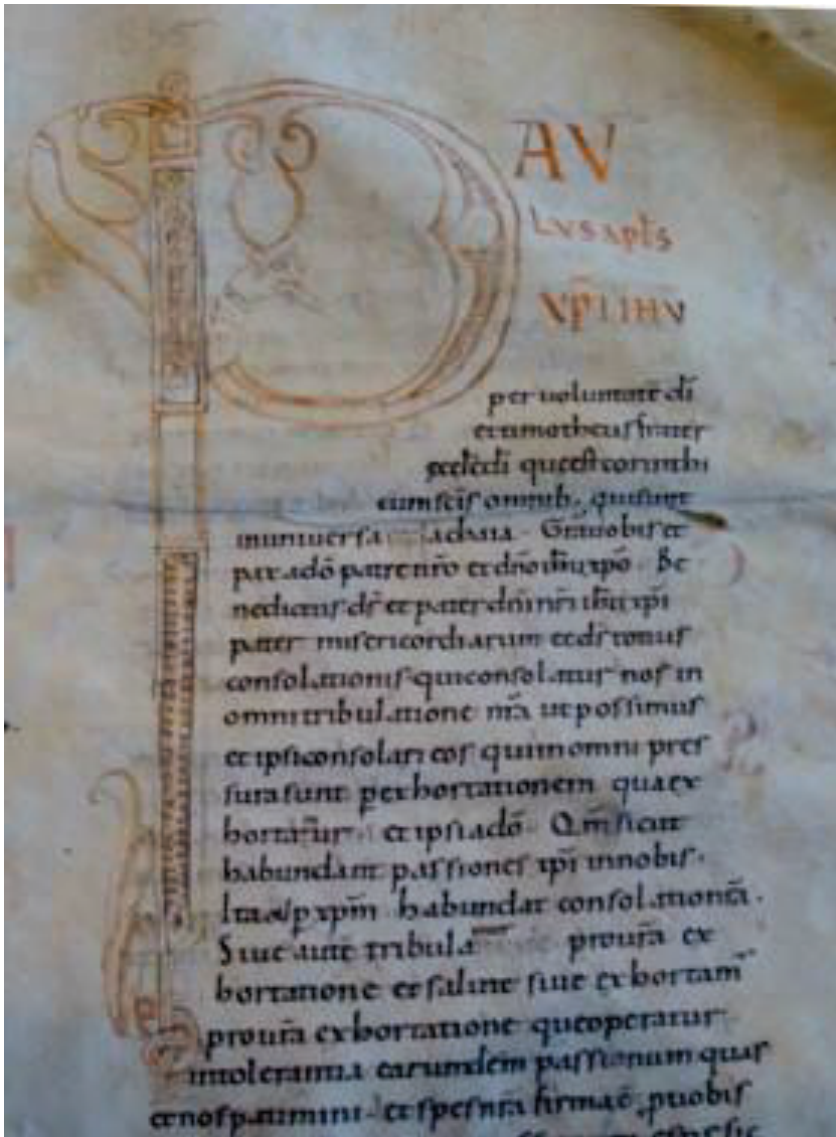 PAV
LVS apłs
XPI IHV
per uoluntatē dī
et timotheus frater
eccłe dī que est corinthi
cum scīs omnib; qui sunt
in uniuersa achaia Gr̄a uobis et
pax a dō patre nr̄o et dn̄o ihū xpō Be
nedictus ds̄ et pater dn̄i nr̄i ihū xpī
pater misericordiarum et ds̄ totius
consolationis qui consolatur nos in
omni tribulatione nr̄a ut possimus
et ipsi consolari eos qui in omni pres
sura sunt per hortationem qua ex
hortamur et ipsi a dō Qm̄ sicut
habundant passiones xpī in nobis.
Ita & p xpm̄ habundat consolatio nr̄a.
Siue autē tribula pro ur̄a ex
hortatione et salute siue exhortam̄
pro ur̄a exhortatione que operatur
in tolerantia earundem passionum quas
et nos patimini et spes nr̄a firma ē p uobis